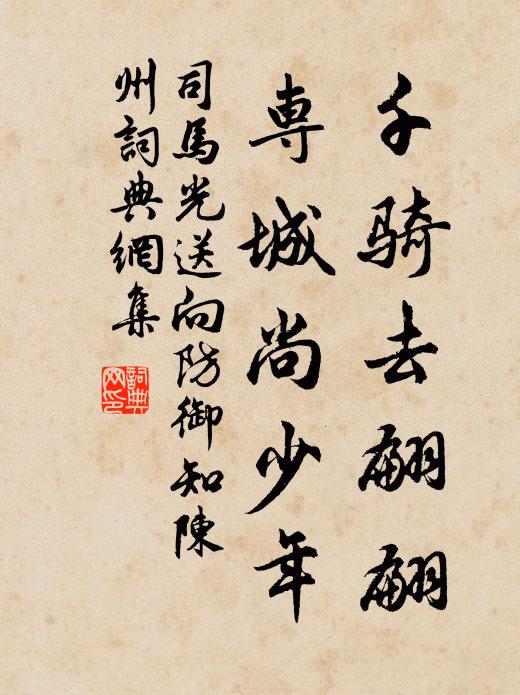 千骑去翩翩
専城尚少年
司馬光送向防御知陳
州詞典網集
詞典
网印